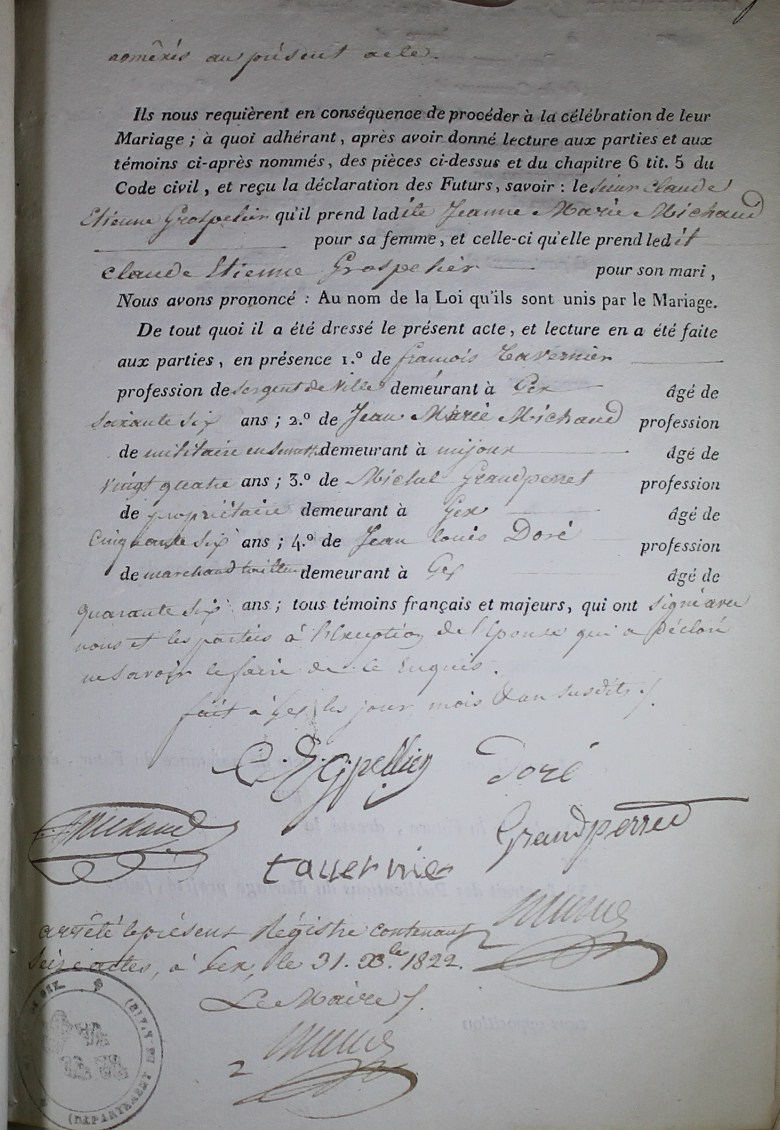 annéxés au présent acte.
Ils nous requièrent en conséquence de procéder à la célébration de leur
Mariage ; à quoi adhérant, après avoir donné lecture aux parties et aux
témoins ci-après nommés, des pièces ci-dessus et du chapitre 6 tit. 5 du
Code civil, et reçu la déclaration des Futurs, savoir : le sieur Claude
Etienne Grospelier qu'il prend ladite Jeanne Marie Michaud
pour sa femme, et celle-ci qu'elle prend ledit
Claude Etienne Grospelier pour son mari,
Nous avons prononcé : Au nom de la Loi qu'ils sont unis par le Mariage.
De tout quoi il a été dressé le présent acte, et lecture en a été faite
aux parties, en présence 1.º de francois Tavernier
profession de sergent de ville demeurant à Gex âgé de
soixante six ans ; 2.º de Jean Marie Michaud profession
de militaire en demeurant à mijoux âgé de
vingt quatre ans ; 3.º de Michel Grandperret profession
de propriétaire demeurant à Gex âgé de
cinquante six ans ; 4.º de Jean Louis Doré profession
de marchand tailleur demeurant à Gex âgé de
quarante six ans ; tous témoins français et majeurs, qui ont signé avec
nous et les parties à l'Exception de l'Epouse qui a déclaré
ne savoir le faire de ce Enquis.
fait à Gex les jour mois & an susdits
Doré
Michaud
Grandperret
tavernier
arrêté le présent Régistre contenant
seize actes, à Gex, le 31. Xbre 1822.
Le Maire